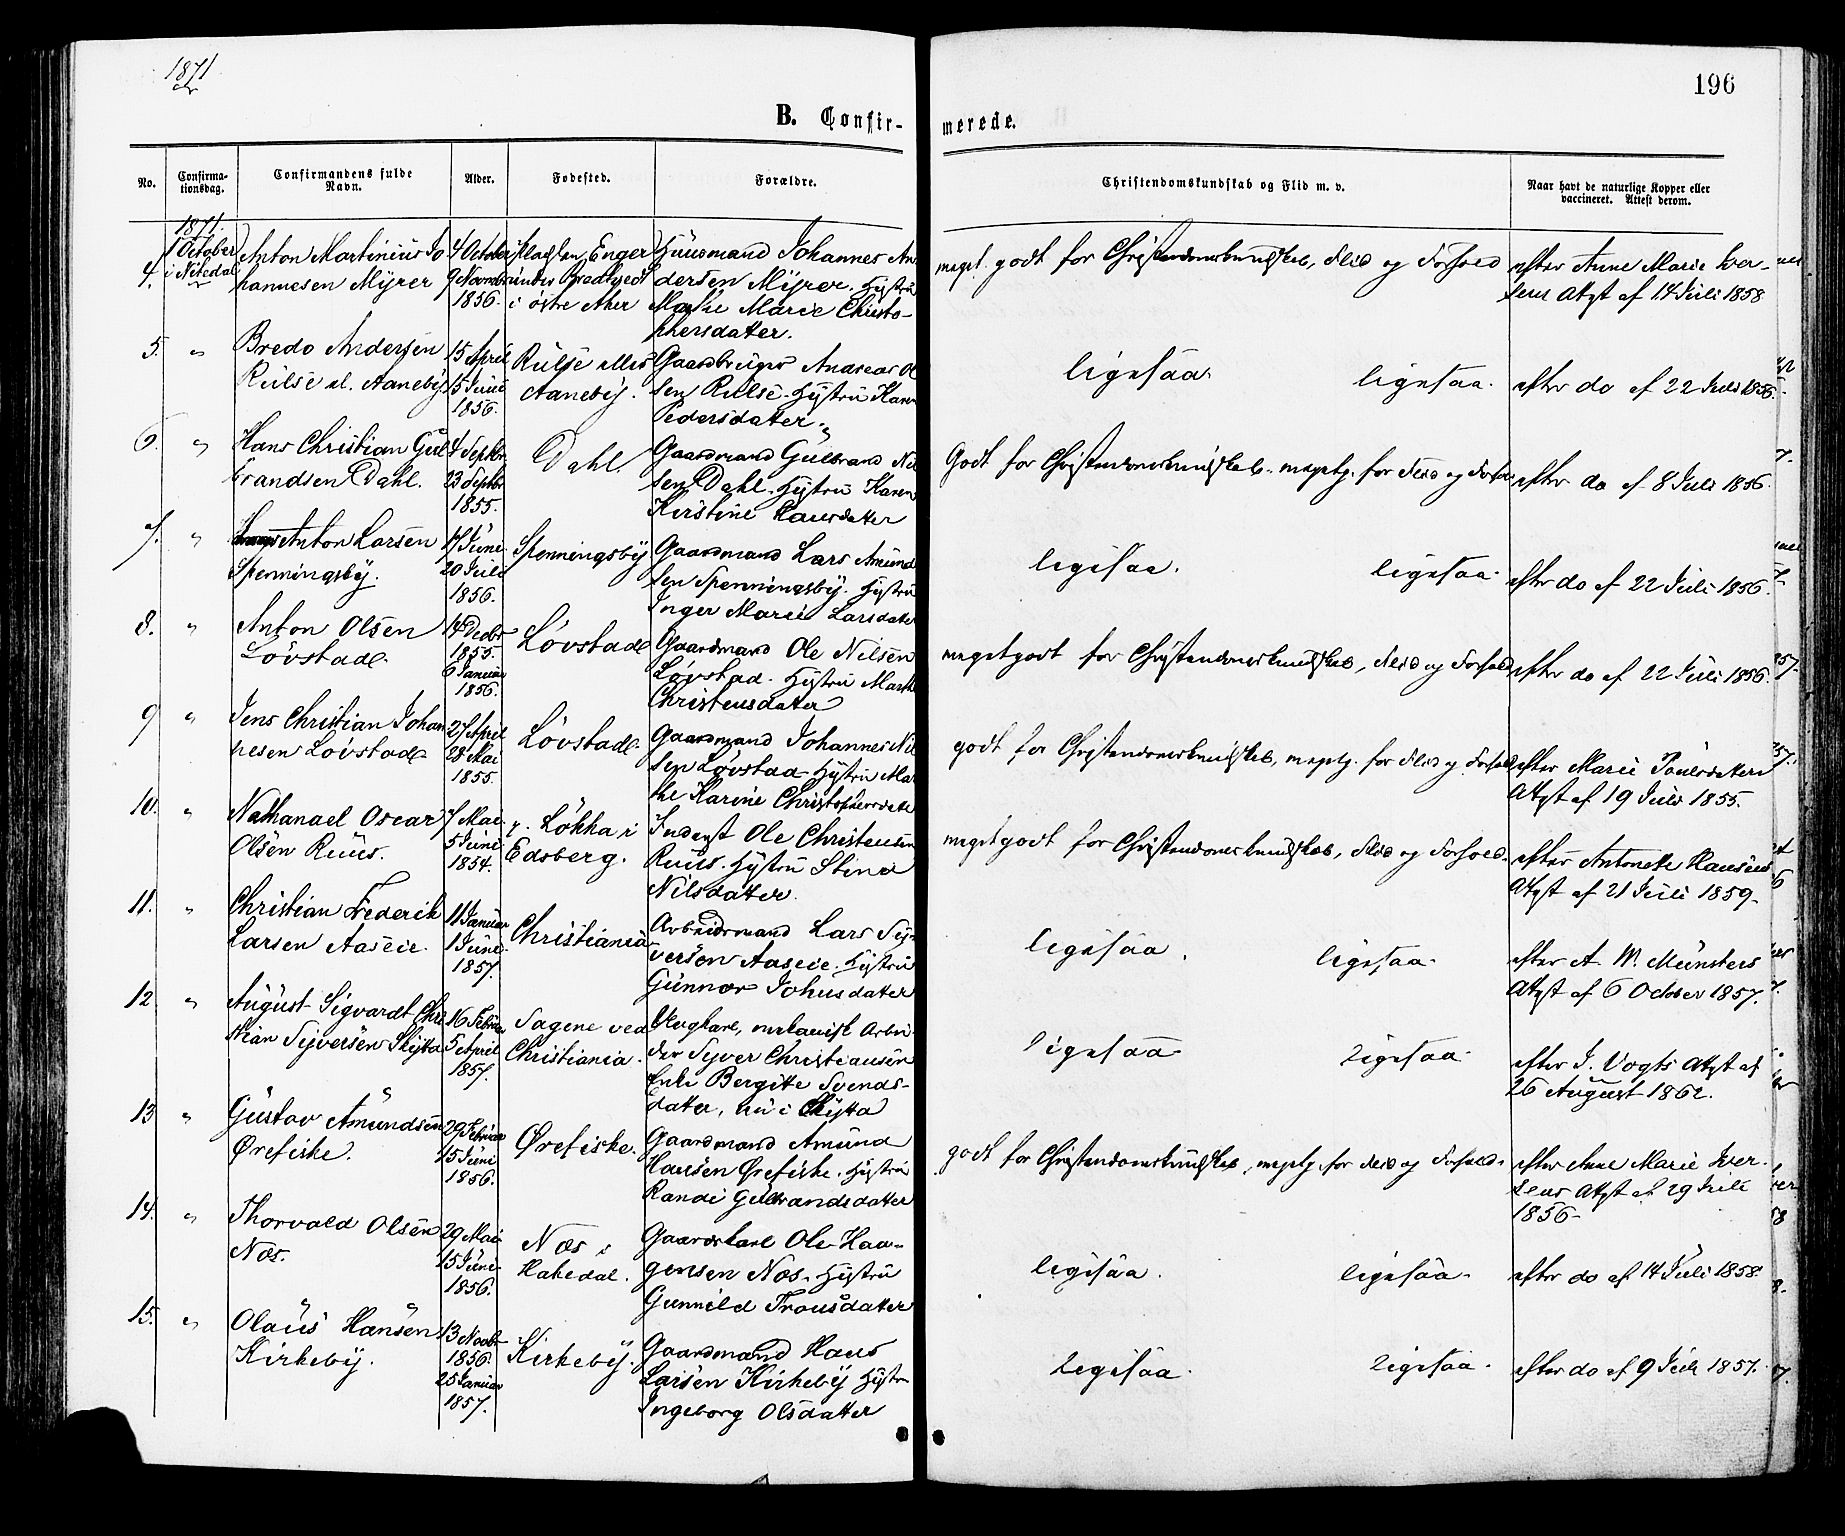 1871
196
B. Confir-
merede.
No.
Confirma-
tionsdag.
Confirmandens fulde
Navn.
Alder.
Fødested.
Forældre.
Christendomskundskab og Flid m. v.
Naar havt de naturlige Kopper eller
vaccineret. Attest derom.
1871.
4.
1 October
i Nitedal
Anton Martinius Jo
hannesen Myrer
4 October
9 Novembr
1856.
Pladsen Enger
under
i østre Aker
Huusmand Johannes An
dersen Myrer. Hustru
Marie Christo-
phersdatter.
meget godt for Christendomskundskab, Flid og Forhold
efter Anne Marie Iver-
sens Attest af 14 Juli 1858
5.
"
Bredo Andersen
Rulse el. Aaneby
15 April
15 Juni
1856.
Rulse eller
Aaneby.
Gaardbruger Andreas Ol
sen Rulse. Hustru Karen
Pedersdatter.
ligesaa.
ligesaa.
efter do af 22 Juli 1856.
6.
"
Hans Christian Gul
brandsen Dahl.
4 Septbr
23 Septbr
1855.
Dahl
Gaardmand Gulbrand Nil
sen Dahl. Hustru Karen
Kirstine Hansdatter
Godt for Christendomskundskab. megetg. for Flid og Forhold
efter do af 8 Juli 1856.
7.
"
Anton Larsen
Spenningsby.
17 Juni
20 Juli
1856.
Spenningsby
Gaardmand Lars Amund
sen Spenningsby. Hustru
Inger Marie Larsdatter
ligesaa.
ligesaa.
efter do af 22 Juli 1856.
8.
"
Anton Olsen
Løvstad.
14 Decbr
1855.
6 Januar
1856.
Løvstad
Gaardmand Ole Nilsen
Løvstad. Hustru Marthe
Christensdatter
megetgodt for Christendomskundskab, Flid og Forhold
efter do af 22 Juli 1856.
9
"
Jens Christian Johan
nesen Løvstad
27 April
28 Mai
1855.
Løvstad.
Gaardmand Johannes Nil
sen Løvstad Hustru Ma
the Karine Christophersdatte
godt for Christendomskundskab, megetg. for Flid og Forhold
efter Marie Poulsdatters
Attest af 19 Juli 1855.
10.
"
Nathanael Oscar
Olsen Ruus.
7 Mai
5 Juni
1854.
Løkka i
Edsberg.
Inderst Ole Christensen
Ruus. Hustru Stine
Nilsdatter.
megetgodt for Christendomskundskab, Flid og Forhold.
efter Antonette Hansens
Attest af 21 Juli 1859.
11.
"
Christian Frederik
Larsen Aaseie.
11 Januar
1 Juni
1857.
Christiania
Arbeidsmand Lars Sy-
versen Aaseie. Hustru
Gunnor Johnsdatter
ligesaa.
ligesaa.
efter A. W. Münsters
Attest af 6 October 1857.
12.
"
August Sigvardt Chri
stian Syversen Skytta
16 Februar
5 April
1857.
Sagene ved
Christiania.
Ungkarl, mekanisk Arbei
der Syver Christiansen
Enke Bergitte Svends-
datter, nu i Skytta
ligesaa
ligesaa.
efter J. Vogts Attest af
26 August 1862.
13
"
Gustav Amundsen
Ørefiske.
29 Februar
15 Juni
1856.
Ørefiske.
Gaardmand Amund
Hansen Ørefiske. Hustru
Randi Gulbrandsdatter
godt for Christendomskundskab, megetg. for Flid og Forhold.
efter Anne Marie Iver.
sens Attest af 29 Juli
1856.
14.
"
Thorvald Olsen
Næs.
29 Mai
15 Juni
1856.
Næs i
Hakedal.
Gaardskarl Ole Haa-
gensen Næs. Hustru
Gunnild Tronsdatter
ligesaa.
ligesaa.
efter do af 14 Juli 1858.
15.
"
Olaus Hansen
Kirkeby.
13 Novbr
1856.
25 Januar
1857.
Kirkeby.
Gaardmand Hans
Larsen Kirkeby Hustru
Ingeborg Olsdatter
Ligesaa.
Ligesaa.
efter do af 9 Juli 1857.